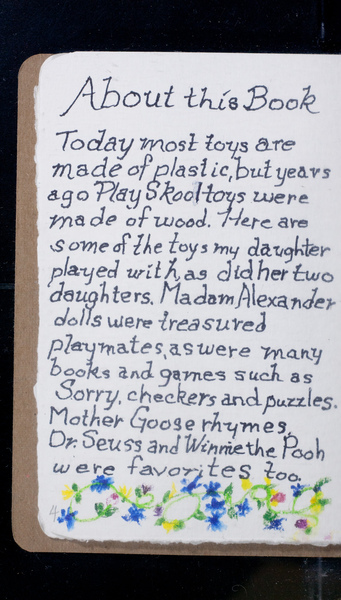 About this Book
Today most toys are
made of plastic, but years
ago PlaySkool toys were
made of wood. Here are
some of the toys my daughter
played with, as did her two
daughters. Madam Alexander
dolls were treasured
playmates, as were many
books and games such as
Sorry, checkers and puzzles.
Mother Goose rhymes,
Dr. Seuss and Winnie the Pooh
were favorites too.
4